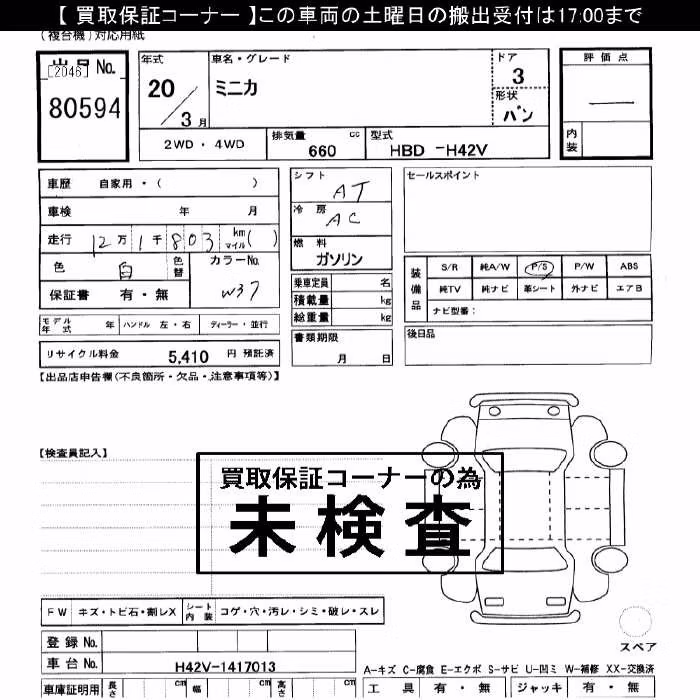 【 買取保証コーナー 】この車両の土曜日の搬出受付は17:00まで
(複合機)対応用紙
出品 No.
[2046]
80594
年式
20
/
3 月
車名・グレード
ミニカ
ドア
3
形状
バン
2WD ・ 4WD
排気量 cc
660
型式
HBD -H42V
評 価 点
一
内装
車歴 自家用 ・ ( )
車検 年 月
走行 12万 1千 803 km マイル ( )
色 白 色替 カラーNo.
W37
保証書 有 ・ 無
モデル年式 年 ハンドル 左 ・ 右 ディーラー ・ 並行
リサイクル料金 5,410 円 預託済
シフト
AT
冷 房
AC
燃 料
ガソリン
乗車定員 名
積載量 kg
総重量 kg
書類期限
月 日
セールスポイント
装備品
S/R 純A/W P/S P/W ABS
純TV 純ナビ 革シート 外ナビ エアB
ナビ型番：
後日品
【出品店申告欄(不良箇所・欠品・注意事項等)】
【検査員記入】
買取保証コーナーの為
未検査
FW キズ・トビ石・割レX シート内装 コゲ・穴・汚レ・シミ・破レ・スレ
スペア
登録 No.
車台 No. H42V-1417013
A-キズ C-腐食 E-エクボ S-サビ U-凹ミ W-補修 XX-交換済
車庫証明用 長さ cm 幅 cm 高さ cm
工 具 有 ・ 無 ジャッキ 有 ・ 無